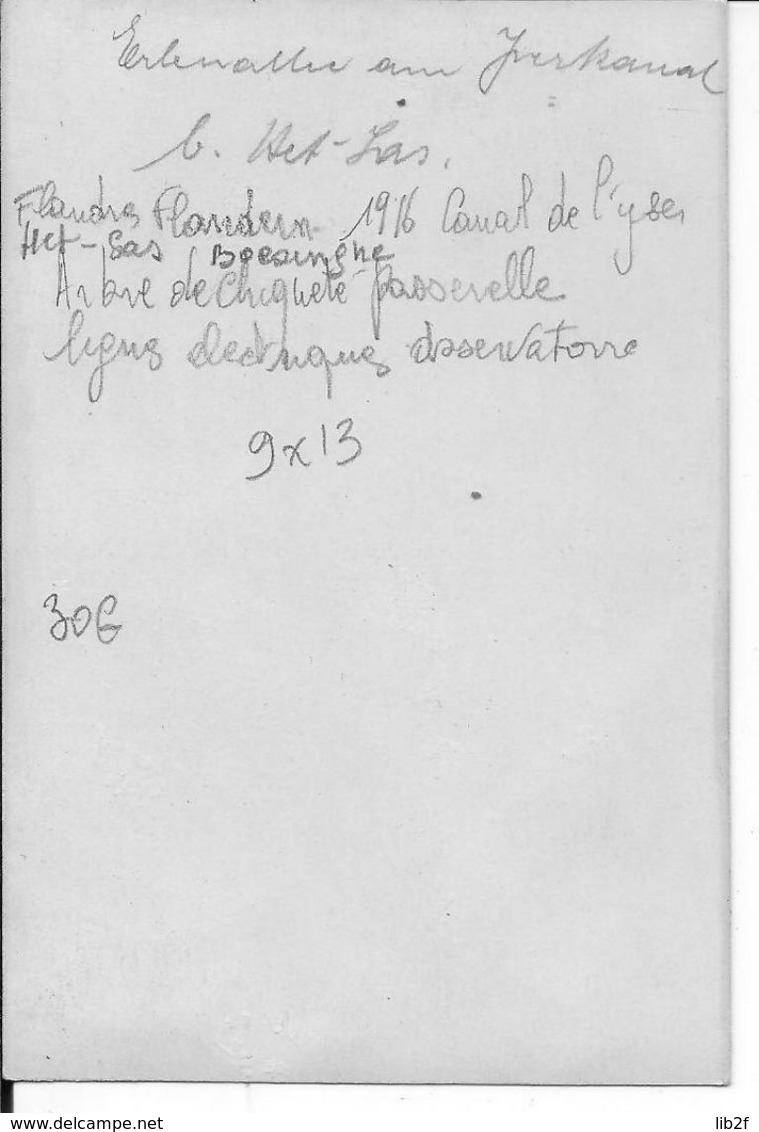 am Yserkanal
b. Het-Sas.
Flandres Flandern 1916 Canal de l'yser
Het-Sas Boesinghe
Arbre dechiqueté passerelle
lignes electriques observatoire
9x13
30€
www.delcampe.net
lib2f